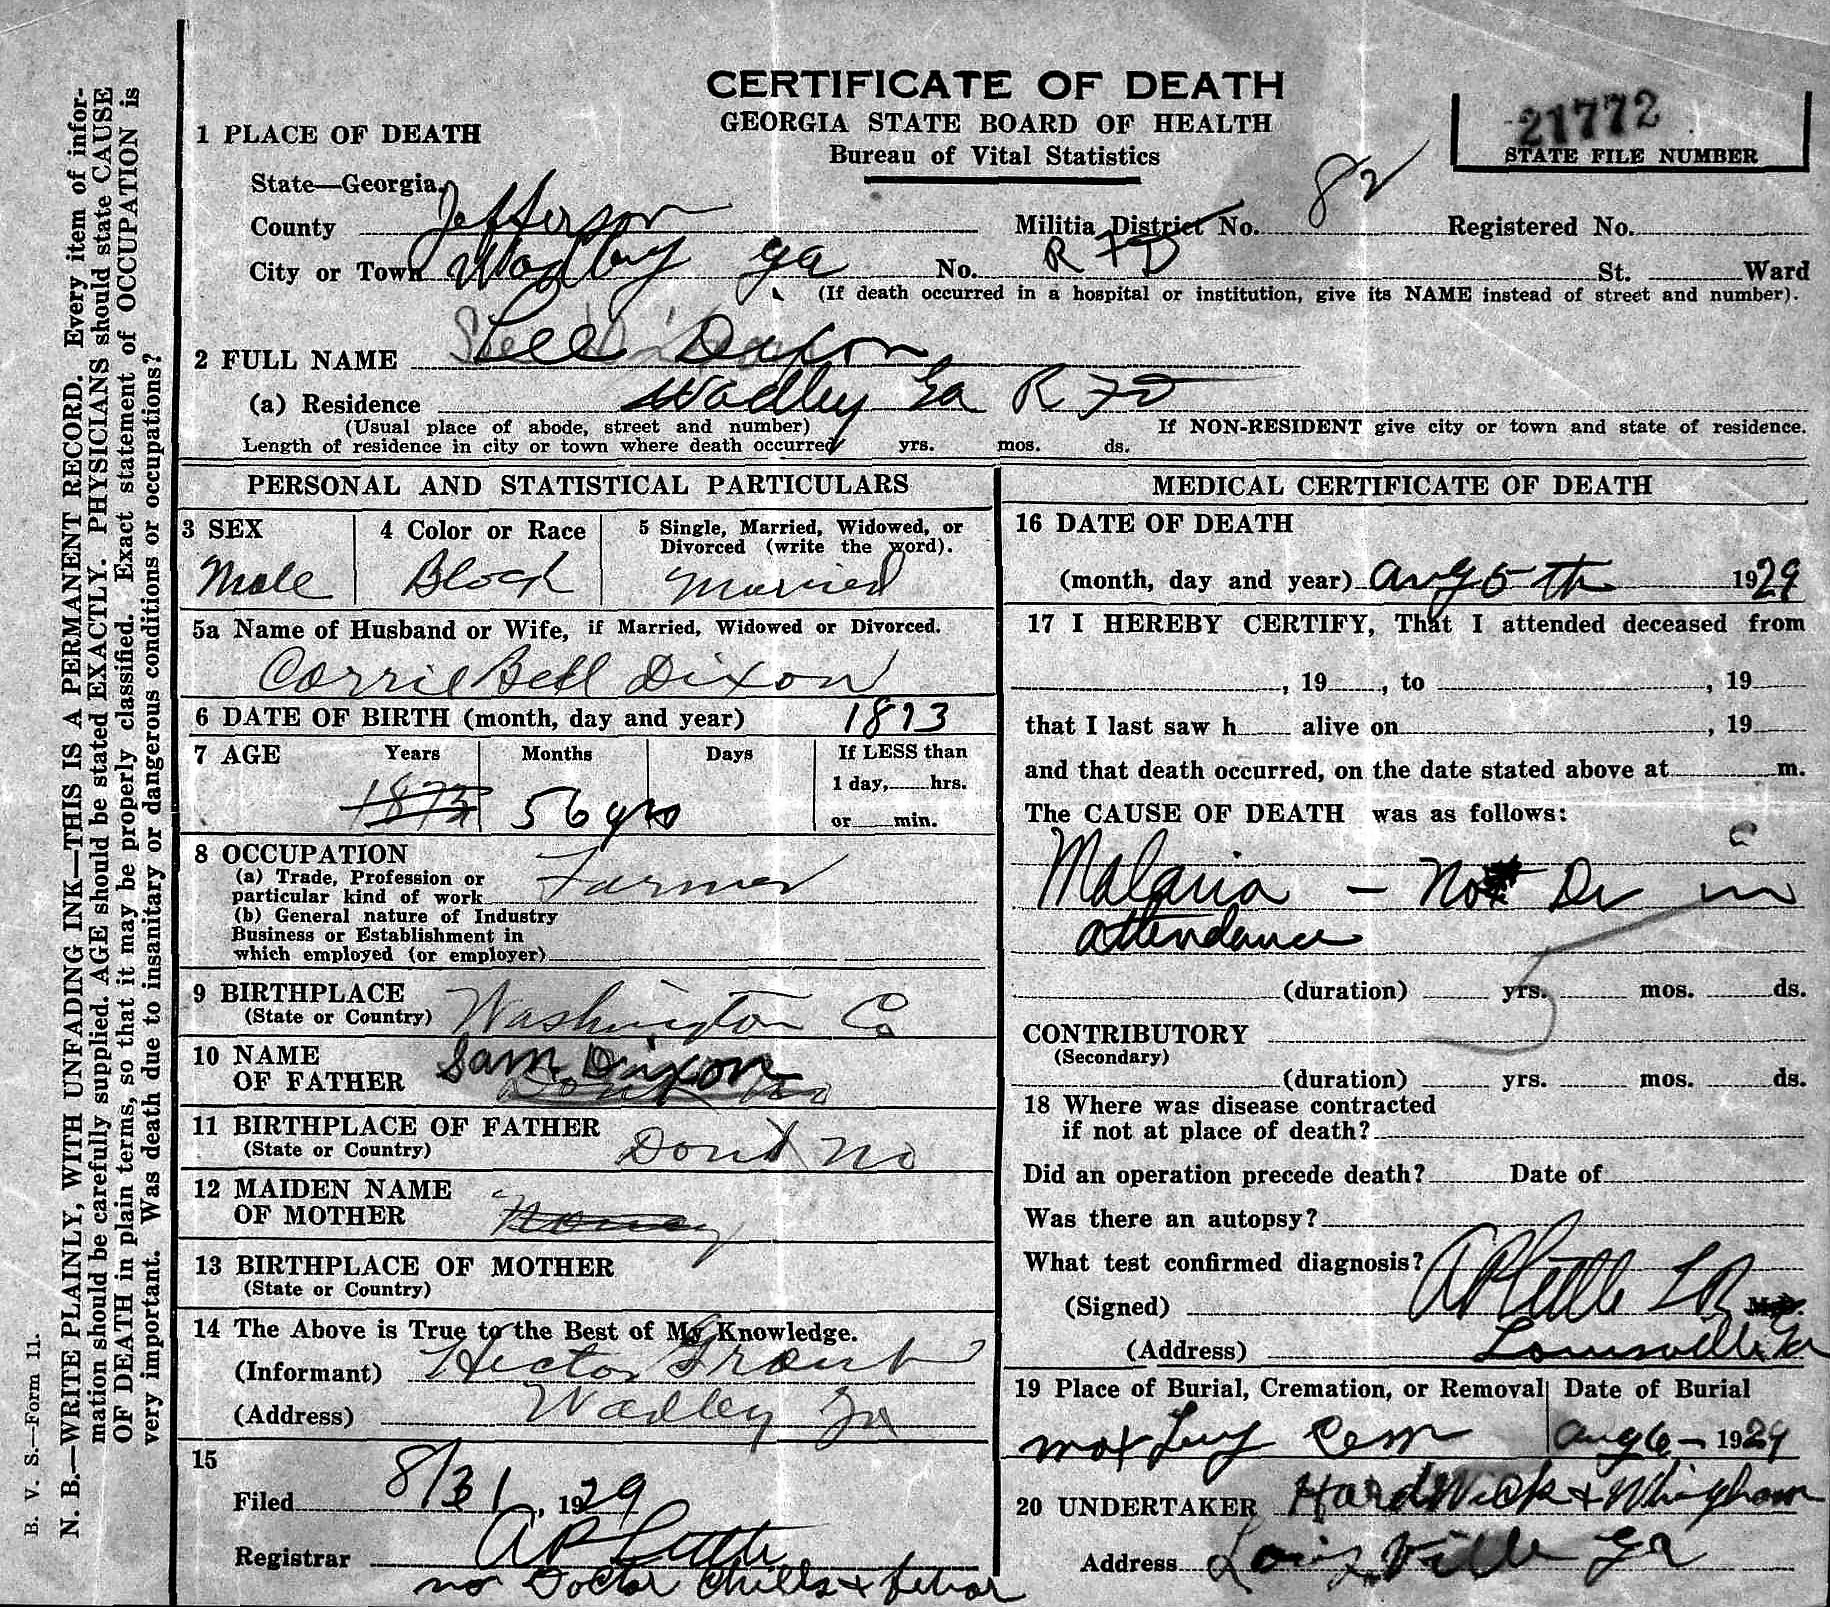 CERTIFICATE OF DEATH
GEORGIA STATE BOARD OF HEALTH
Bureau of Vital Statistics
21772
STATE FILE NUMBER
1 PLACE OF DEATH
State—Georgia.
County Jefferson Militia District No. 82 Registered No.
City or Town Wadley Ga No. R F D St. Ward
(If death occurred in a hospital or institution, give its NAME instead of street and number).
2 FULL NAME Lee Dixon
(a) Residence Wadley Ga R F D
(Usual place of abode, street and number) If NON-RESIDENT give city or town and state of residence.
Length of residence in city or town where death occurred yrs. mos. ds.
PERSONAL AND STATISTICAL PARTICULARS
3 SEX
Male
4 Color or Race
Black
5 Single, Married, Widowed, or
Divorced (write the word).
Married
5a Name of Husband or Wife, if Married, Widowed or Divorced.
Corrie Bell Dixon
6 DATE OF BIRTH (month, day and year) 1873
7 AGE Years Months Days If LESS than
1 day, hrs.
or min.
1873 56 yrs
8 OCCUPATION
(a) Trade, Profession or
particular kind of work Farmer
(b) General nature of Industry
Business or Establishment in
which employed (or employer)
9 BIRTHPLACE
(State or Country) Washington Co
10 NAME
OF FATHER Sam Dixon
11 BIRTHPLACE OF FATHER
(State or Country) Dont No
12 MAIDEN NAME
OF MOTHER
13 BIRTHPLACE OF MOTHER
(State or Country)
14 The Above is True to the Best of My Knowledge.
(Informant) Hector
(Address) Wadley Ga
15
Filed 8/31, 1929
Registrar
no Doctor Chills &
MEDICAL CERTIFICATE OF DEATH
16 DATE OF DEATH
(month, day and year) Aug 5 th 1929
17 I HEREBY CERTIFY, That I attended deceased from
, 19 , to , 19
that I last saw h alive on , 19
and that death occurred, on the date stated above at m.
The CAUSE OF DEATH was as follows:
Malaria — No Dr in
attendance
5
(duration) yrs. mos. ds.
CONTRIBUTORY
(Secondary)
(duration) yrs. mos. ds.
18 Where was disease contracted
if not at place of death?
Did an operation precede death? Date of
Was there an autopsy?
What test confirmed diagnosis?
(Signed) L R
(Address) Louisville Ga
19 Place of Burial, Cremation, or Removal Date of Burial
Cem Aug 6 - 1929
20 UNDERTAKER HardWick & Whigham
Address Louisville Ga
B. V. S.—Form 11.
N. B.—WRITE PLAINLY, WITH UNFADING INK—THIS IS A PERMANENT RECORD. Every item of infor-
mation should be carefully supplied. AGE should be stated EXACTLY. PHYSICIANS should state CAUSE
OF DEATH in plain terms, so that it may be properly classified. Exact statement of OCCUPATION is
very important. Was death due to insanitary or dangerous conditions or occupations?